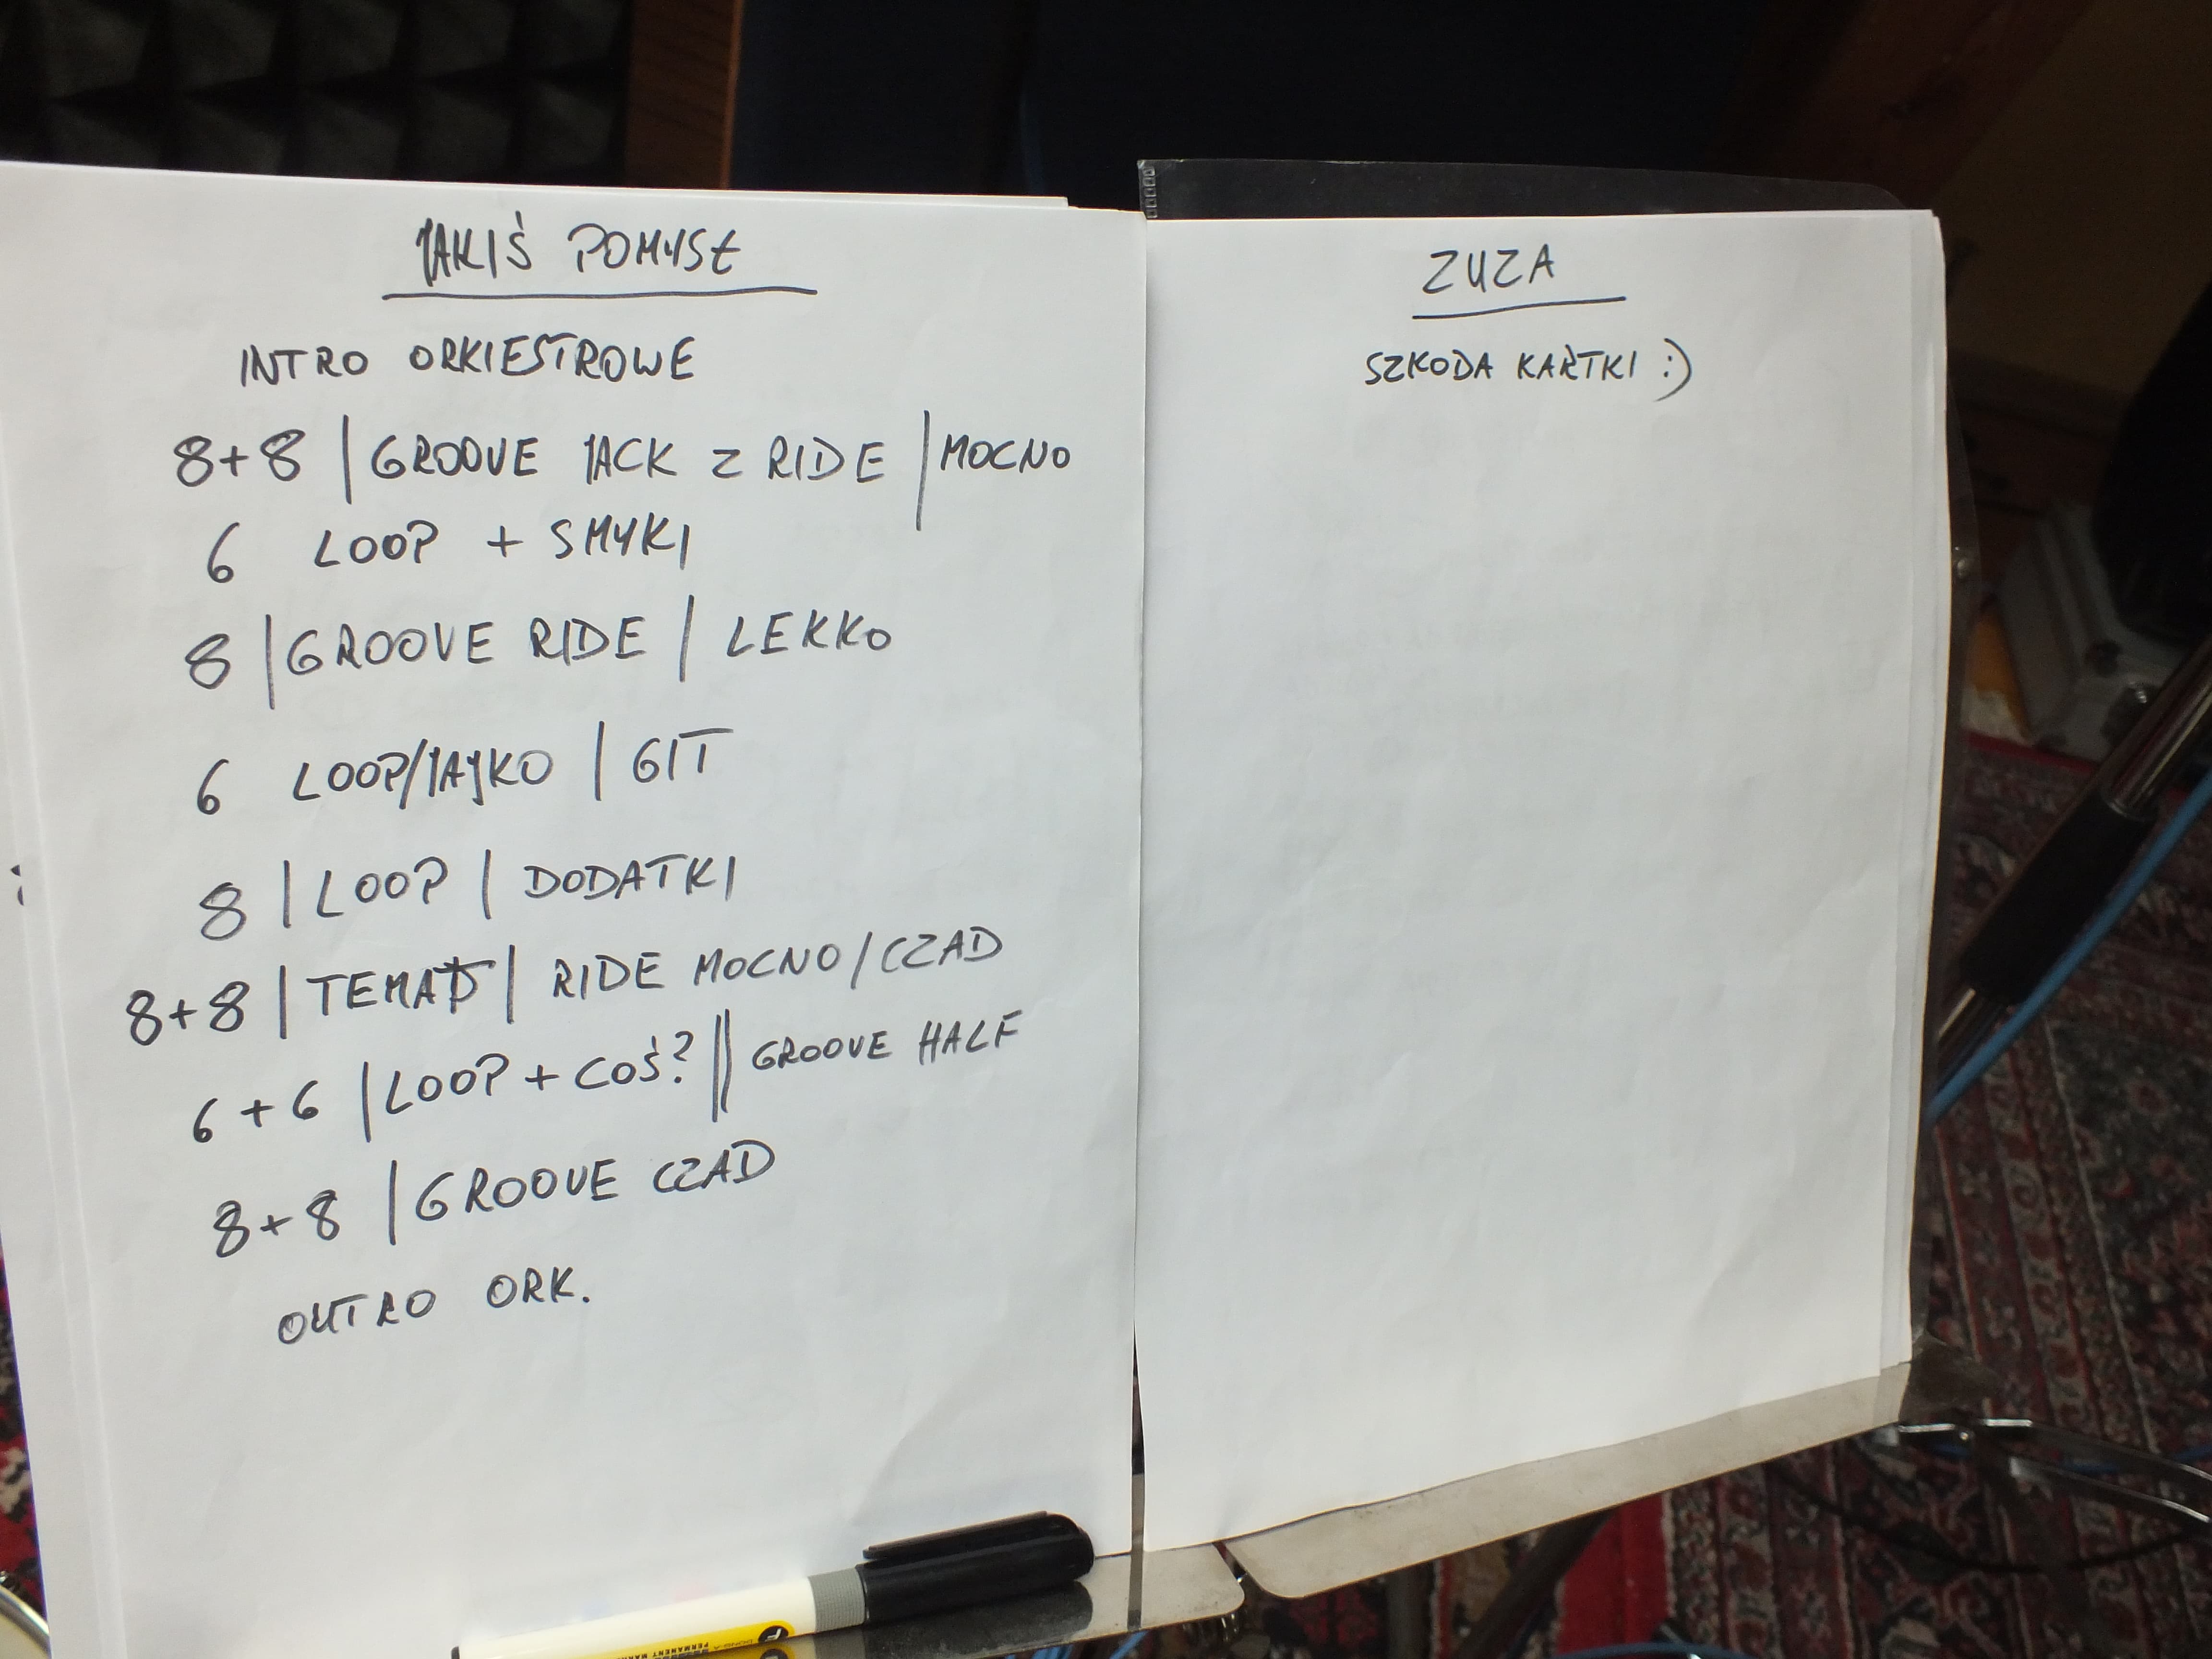 JAKIŚ POMYSŁ
INTRO ORKIESTROWE
8+8 | GROOVE JACK Z RIDE | MOCNO
6 LOOP + SMYKI
8 | GROOVE RIDE | LEKKO
6 LOOP/JAJKO | GIT
8 | LOOP | DODATKI
8+8 | TEMAT | RIDE MOCNO/CZAD
6+6 | LOOP + COŚ? || GROOVE HALF
8+8 | GROOVE CZAD
OUTRO ORK.
ZUZA
SZKODA KARTKI :)
DONG-A
PERMANENT